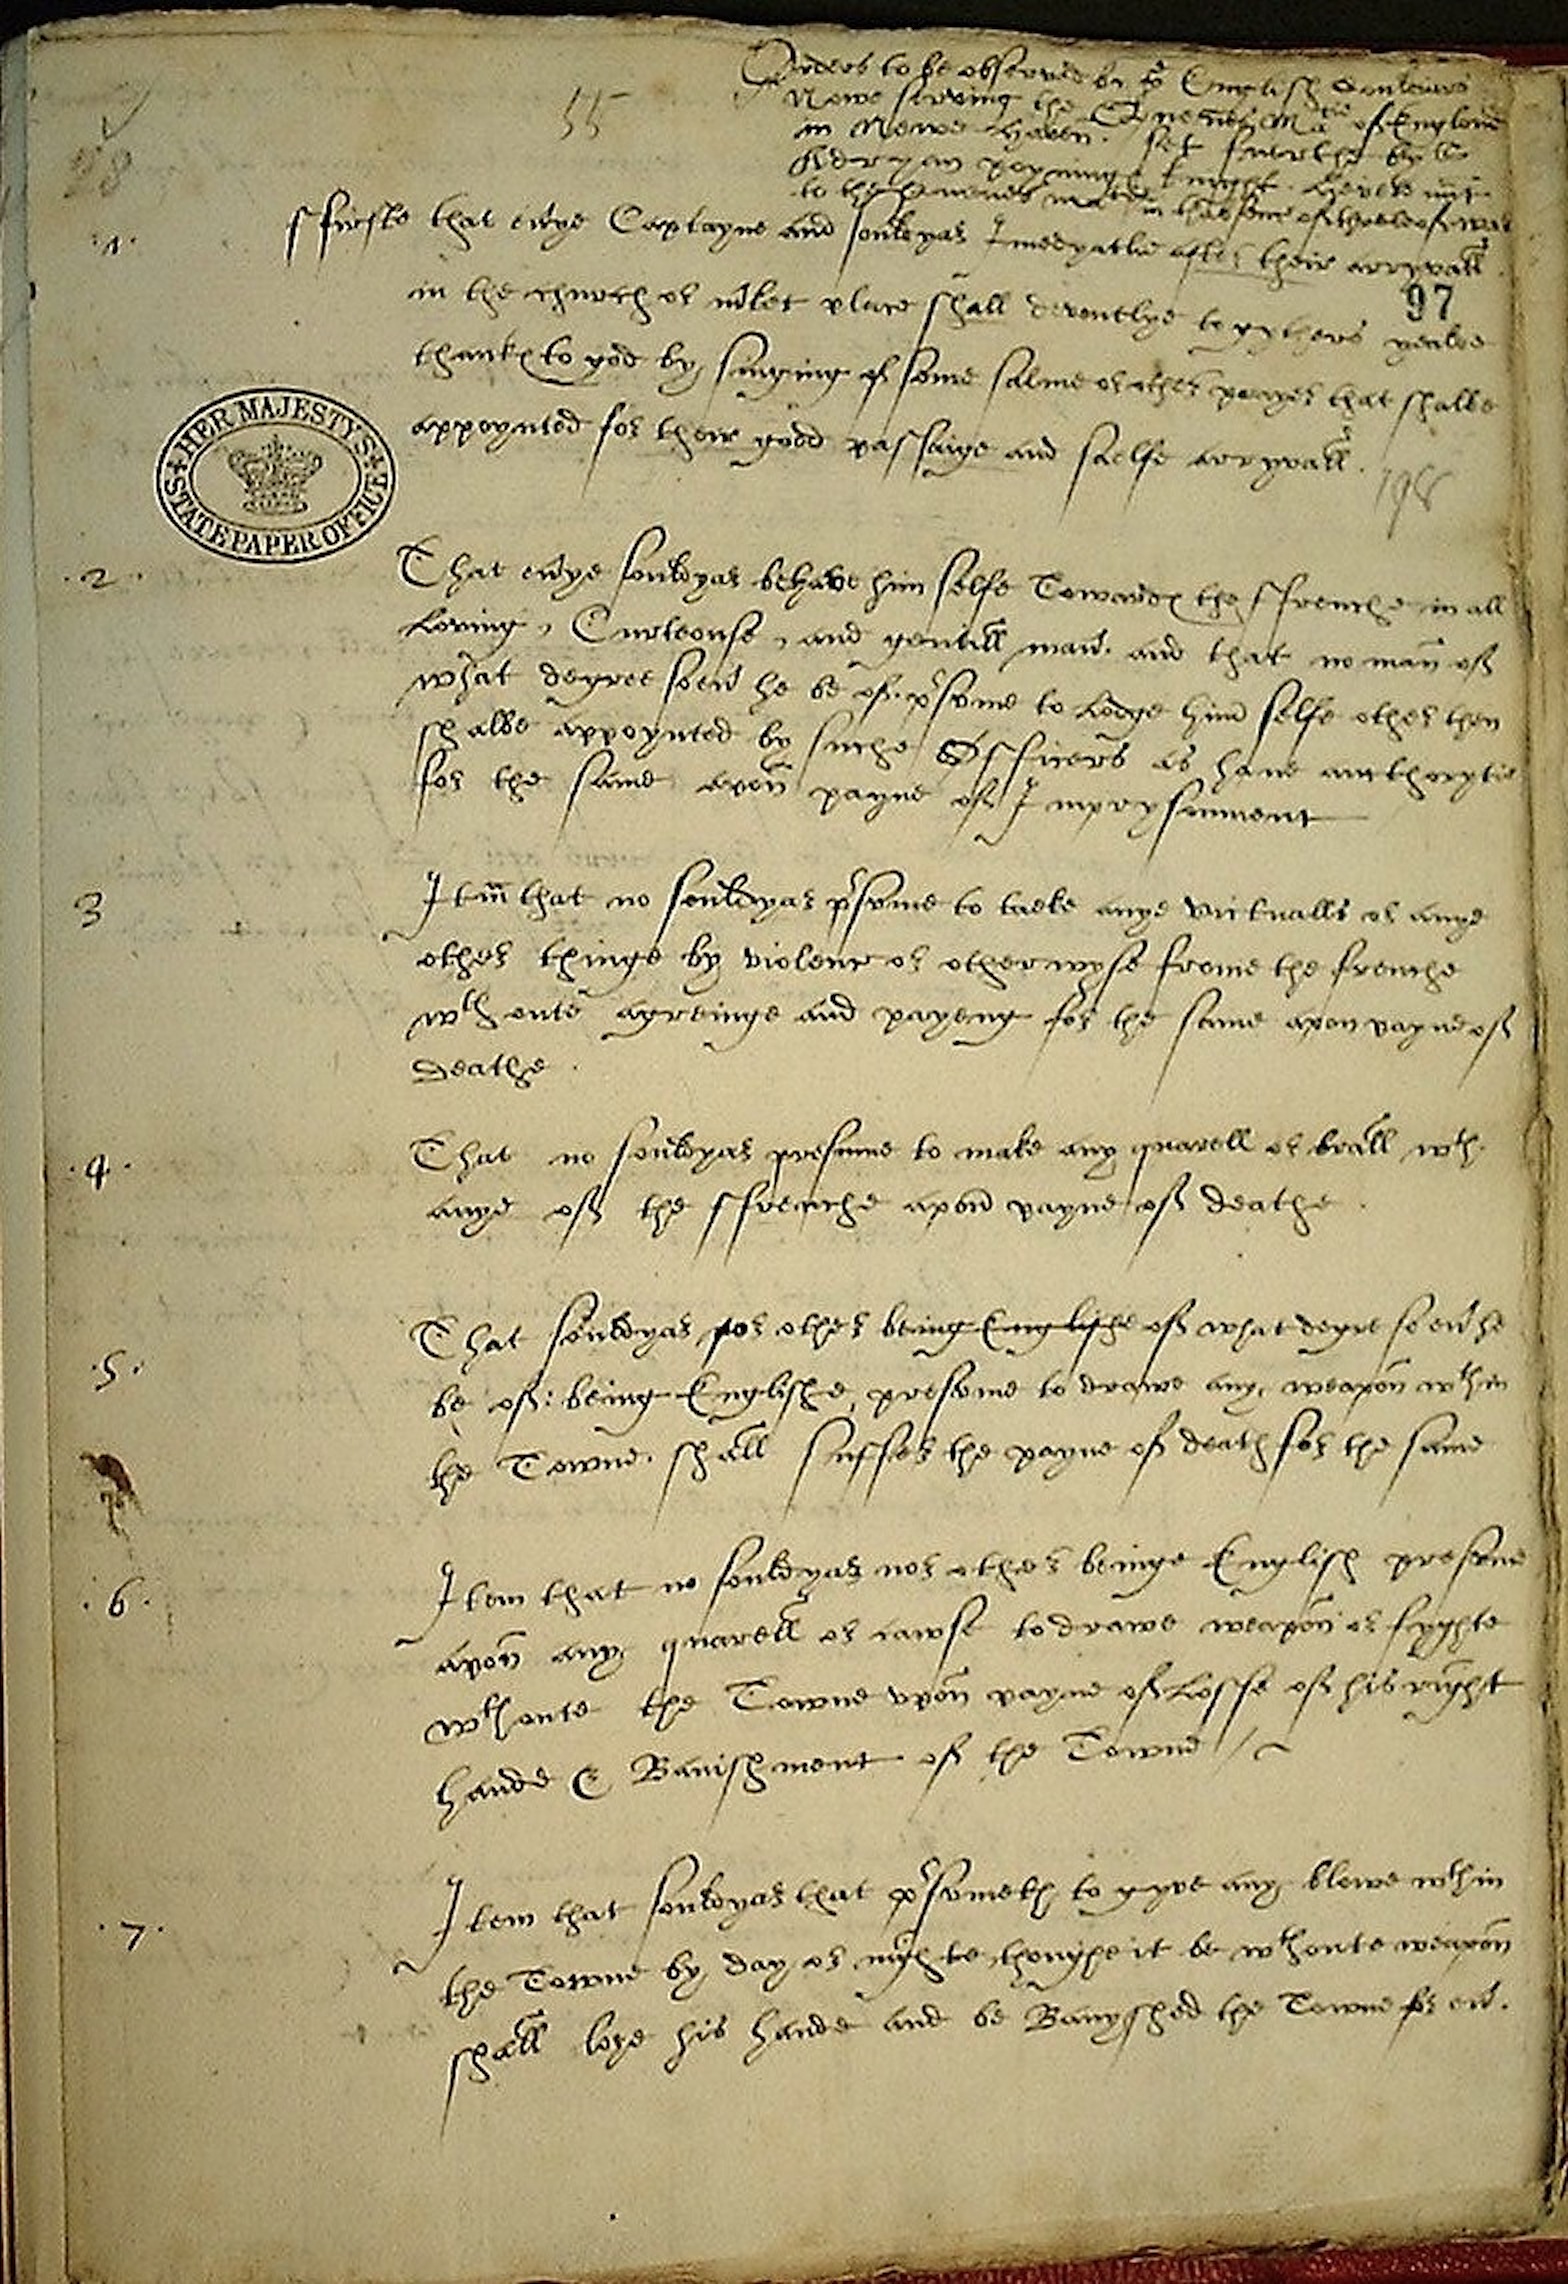 Orders to be observed by the English souldiours
Nowe serving the Quenes Matie of Englond
in Newe haven. set fuorthe by Sr
Adryan poynings knight.
to the Quenes matie in
55
98
.1. ffirste that evrye Captayne and souldyar Imedyatlie after their arryvall
97
in the church or mrket place shall devoutlye togythers yealde
thankes to god by singing of some salme or other prayer that shalbe
appoynted for their good passaige and saelfe arryvall.
198
HER MAJESTY'S
STATE PAPER OFFICE
.2. That evrye souldyar behave him selfe Towardes the ffrenche in all
Loving, Curteouse, and gentill manr. and that no man of
what degree soevr he be of prsome to Lodge him selfe other then
shalbe appoynted by suche Officers as have aucthorytie
for the same apon payne of Imprysonment
3 Itm that no souldyar prsome to take anye victualls or anye
other thinge by violenc or otherwyse frome the frenche
wthoute agreinge and payeng for the same apon payne of
deathe.
.4. That no souldyar presume to make any quarell or brall wth
anye of the ffrenche apon payne of deathe.
.5. That souldyar or other being Englishe of what degre soevr he
be of: being Englishe, presome to drawe any weapon wthin
the Towne. shall suffer the payne of death for the same
.6. Item that no souldyar nor other beinge English presome
apon any quarell or cawse to drawe weapon or fyghte
wthoute the Towne upon payne of Losse of his right
hande & Banishment of the Towne /
.7. Item that souldyar that prsometh to gyve any blowe wthin
the Towne by day or nyghte, thoughe it be wthoute weapon
shall lose his hande and be Banyshed the Towne for evr.